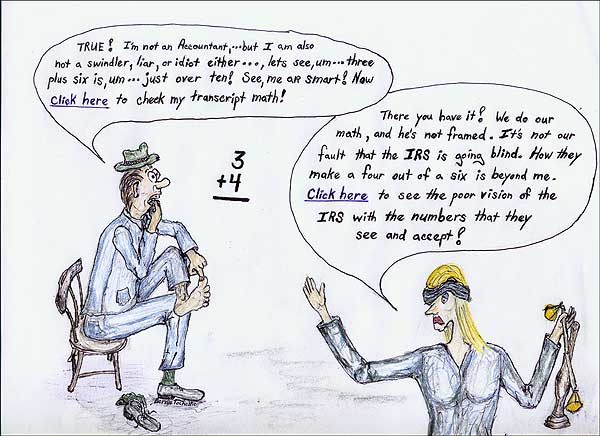 TRUE! I'm not an Accountant,...but I am also
not a swindler, liar, or idiot either..., lets see, um... three
plus six is, um... just over ten! See, me aR smart! Now
Click here to check my transcript math!
There you have it! We do our
math, and he's not framed. It's not our
fault that the IRS is going blind. How they
make a four out of a six is beyond me.
Click here to see the poor vision of the
IRS with the numbers that they
see and accept!
3
+4